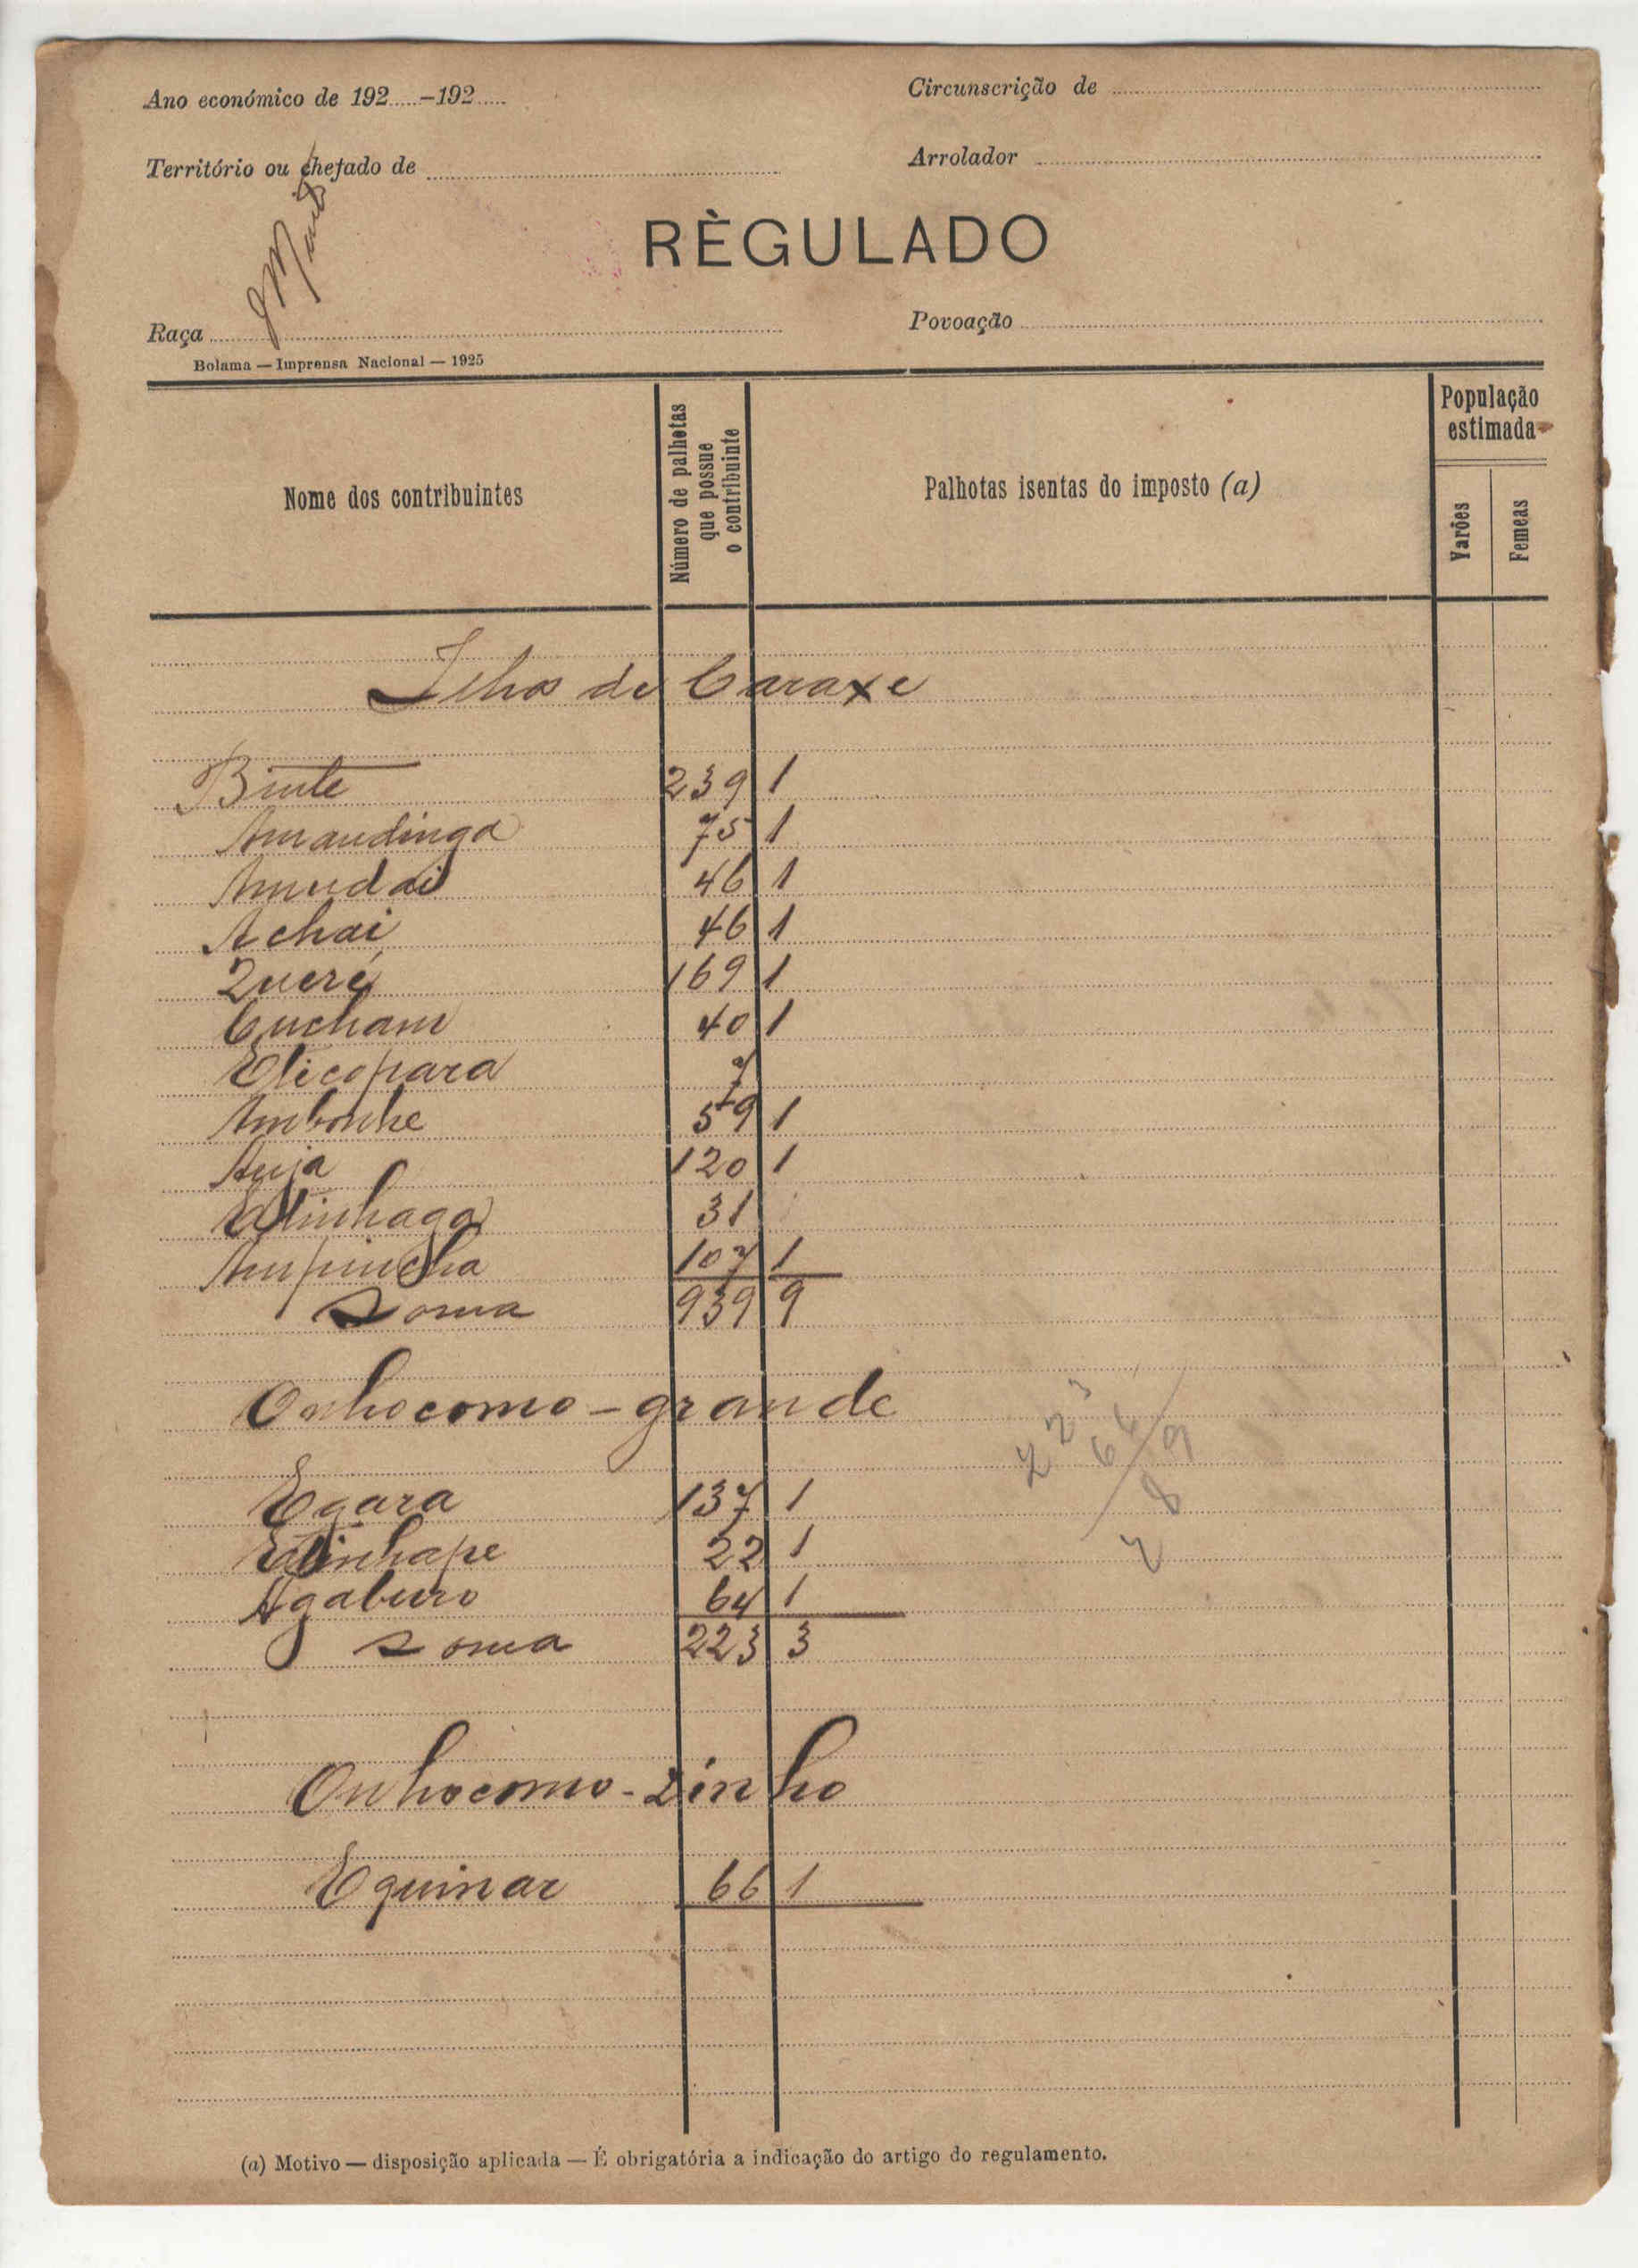 Ano económico de 192.....-192.....
Circunscrição de
Território ou chefado de
Arrolador
RÈGULADO
Raça
Povoação
Bolama — Imprensa Nacional — 1925
Nome dos contribuintes
Número de palhotas que possue o contribuinte
Palhotas isentas do imposto (a)
População estimada
Varões
Femeas
Ilhas de Caraxe
Binte 239 1
Amandinga 75 1
Amudai 46 1
Achai 46 1
Queré 169 1
Cucham 40 1
Eticopara 7
Ambonhe 59 1
Auja 120 1
Etinhaga 31
Ampincha 107 1
Soma 939 9
Onhocomo-grande
Egara 137 1
Etinhape 22 1
Agaburo 64 1
Soma 223 3
Onhocomo-zinho
Equinar 66 1
(a) Motivo — disposição aplicada — É obrigatória a indicação do artigo do regulamento.